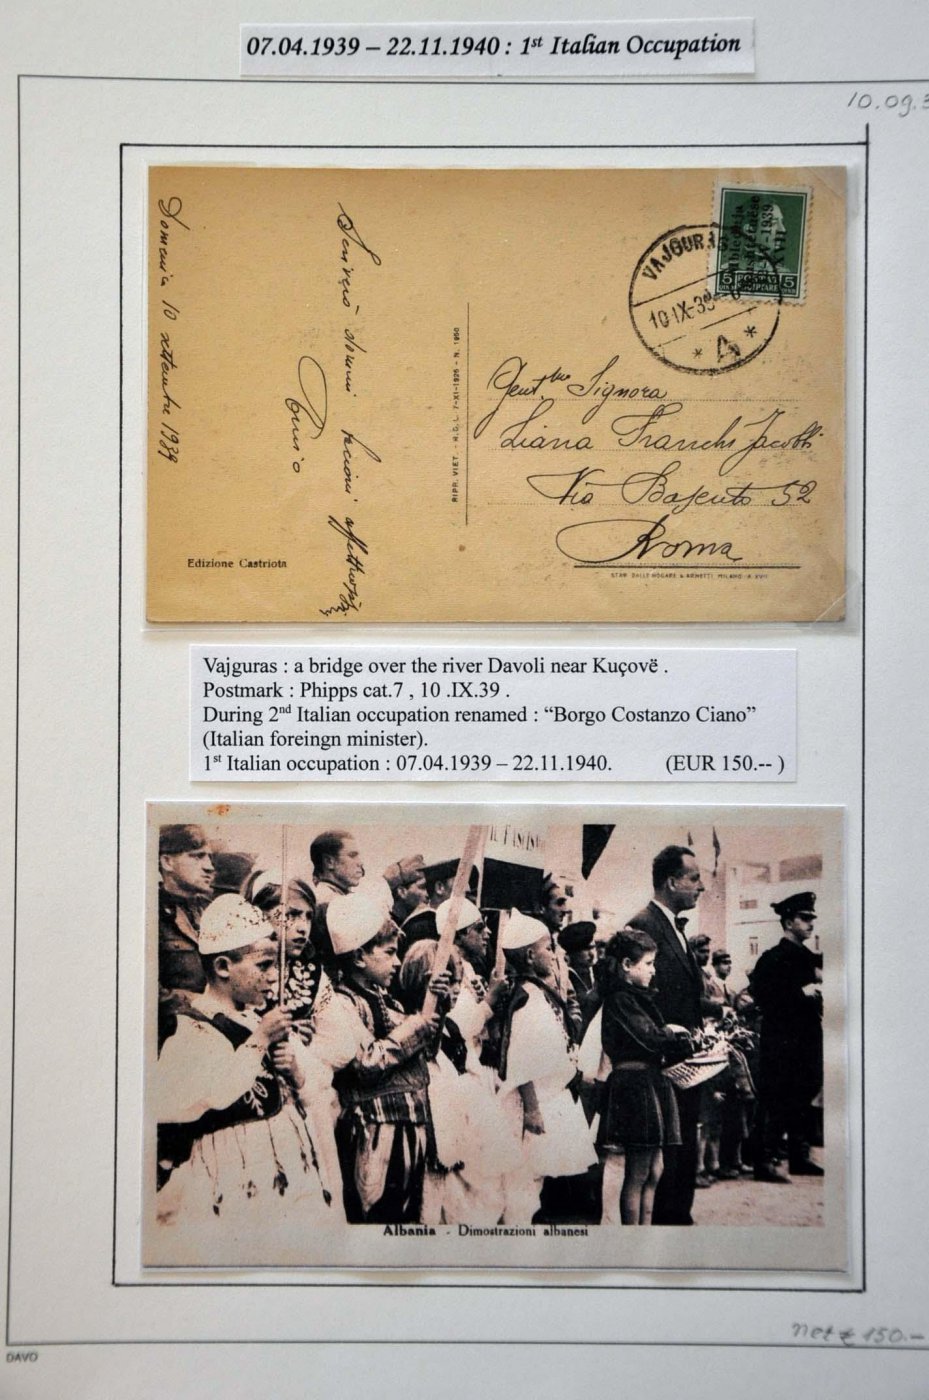 07.04.1939 – 22.11.1940 : 1st Italian Occupation
10.09.3
Domenica 10 settembre 1939
Scriverò domani
affettuosi
Edizione Castriota
RIPR. VIET. - R.G.L. 7-XI-1925 - N. 1950
VAJGUR
10 IX-39
* A *
Mbledhja
Kushtetuëse
12-IV-1939
XVII
5 5
SHQIPTARE
Gent.ma Signora
Liana Franchi Jacobbi
Via Basento 52
Roma
STAB. DALLE NOGARE & ARMETTI MILANO A. XVII
Vajguras : a bridge over the river Davoli near Kuçovë .
Postmark : Phipps cat.7 , 10 .IX.39 .
During 2nd Italian occupation renamed : “Borgo Costanzo Ciano”
(Italian foreingn minister).
1st Italian occupation : 07.04.1939 – 22.11.1940. (EUR 150.-- )
Albania - Dimostrazioni albanesi
net € 150.—
DAVO